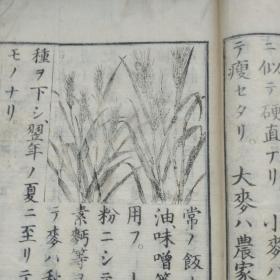 ニ似テ硬直ナリ。小麥
テ瘦セタリ。大麥ハ農家
常ノ飯
油味噌
用フ。
粉ニシテ
素麪等
テ麥ハ秋
種ヲ下シ、翌年ノ夏ニ至リテ
モノナリ。